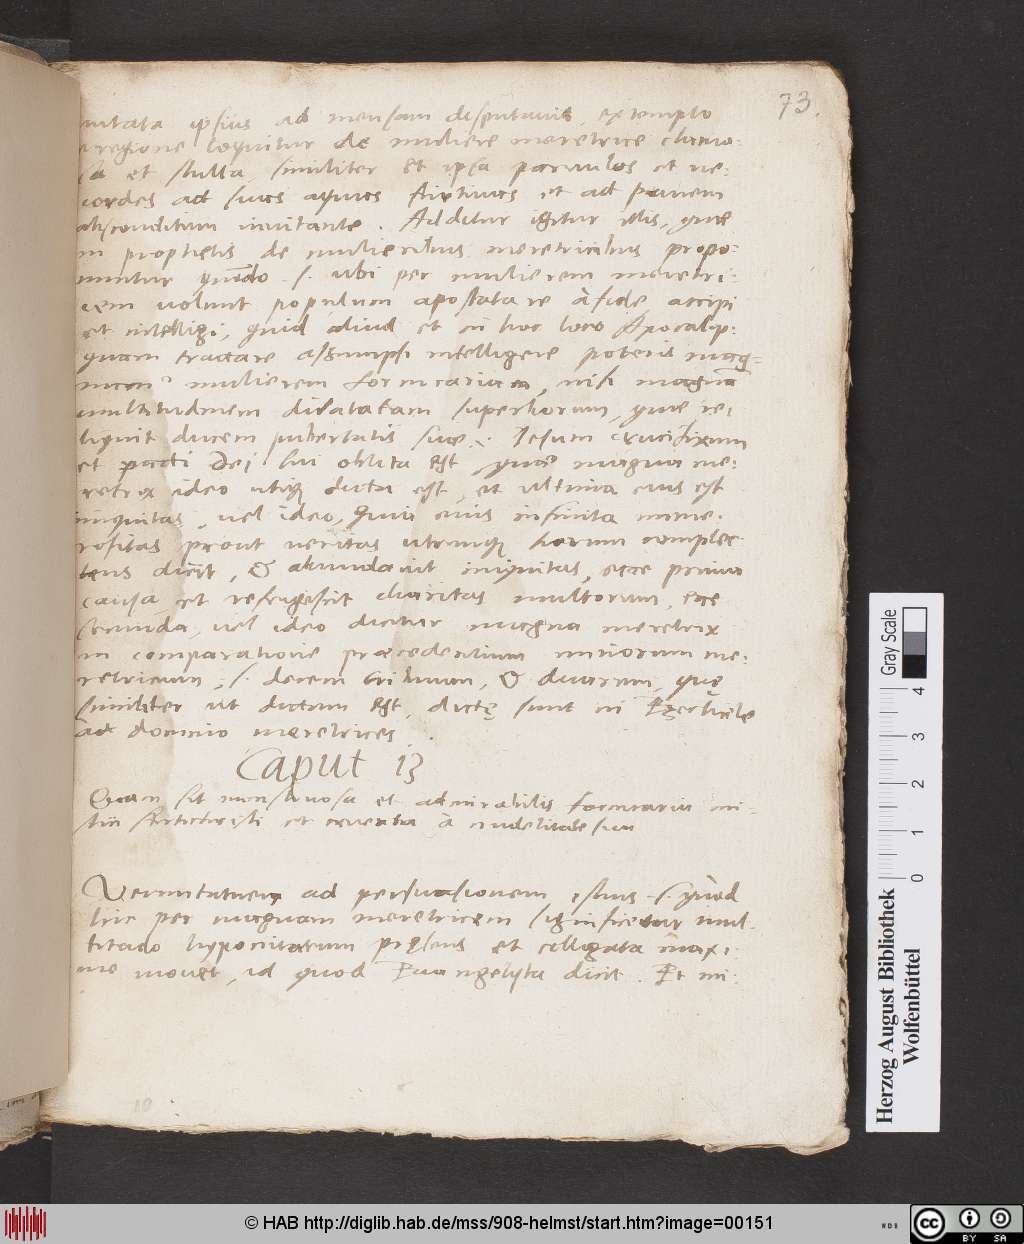 73.
uitata ipsius ad mensam disputavit, extemplo
e regione loquitur de muliere meretrice clamo:
sa et stulta, similiter et ipsa parvulos et ve:
cordes ad suas aquas furtivas et ad panem
absconditum invitante. Additur igitur illis, quae
in prophetis de mulieribus meretricibus propo:
nuntur quando .s. ubi per mulierem meretri:
cem volunt populum apostatare à fide accipi
et intelligi, quid aliud et in hoc loco Apocalip:
quam tractare assumpsi intelligere poteris mag-
nam mulierem fornicariam, nisi magnā
multitudinem dilatatam superborum, quae re:
liquit ducem pubertatis suae .s. Iesum crucifixum
et pacti Dei sui oblita est, quae magna me:
retrix ideo utiq dicta est, et ultima eius est
iniquitas, vel ideo, quia eius infinita nume:
rositas prout veritas utrumq horum complec
tens dicit, & abundavit iniquitas, ecce prima
causa et refrigescit charitas multorum, ecce
secunda, vel ideo dicitur magna meretrix
in comparatione praecedentium minorum me:
retricum, .s. decem tribuum, & duarum, quę
similiter ut dictum est, dictę sunt in Ezechiele
ad domino meretrices.
Caput 13
Quam sit monstruosa et admirabilis fornicaria mi-
Antichristi et cruenta à crudelitate sua
Veruntamen ad persuasionem istius .s. quod
hic per magnam meretricem significetur mul-
titudo hypocritarum pręsens et colligata maxi:
me movet, id quod Euangelista dicit. Et mi:
Gray Scale
0 1 2 3 4
Herzog August Bibliothek
Wolfenbüttel
© HAB http://diglib.hab.de/mss/908-helmst/start.htm?image=00151
WDB
cc BY SA